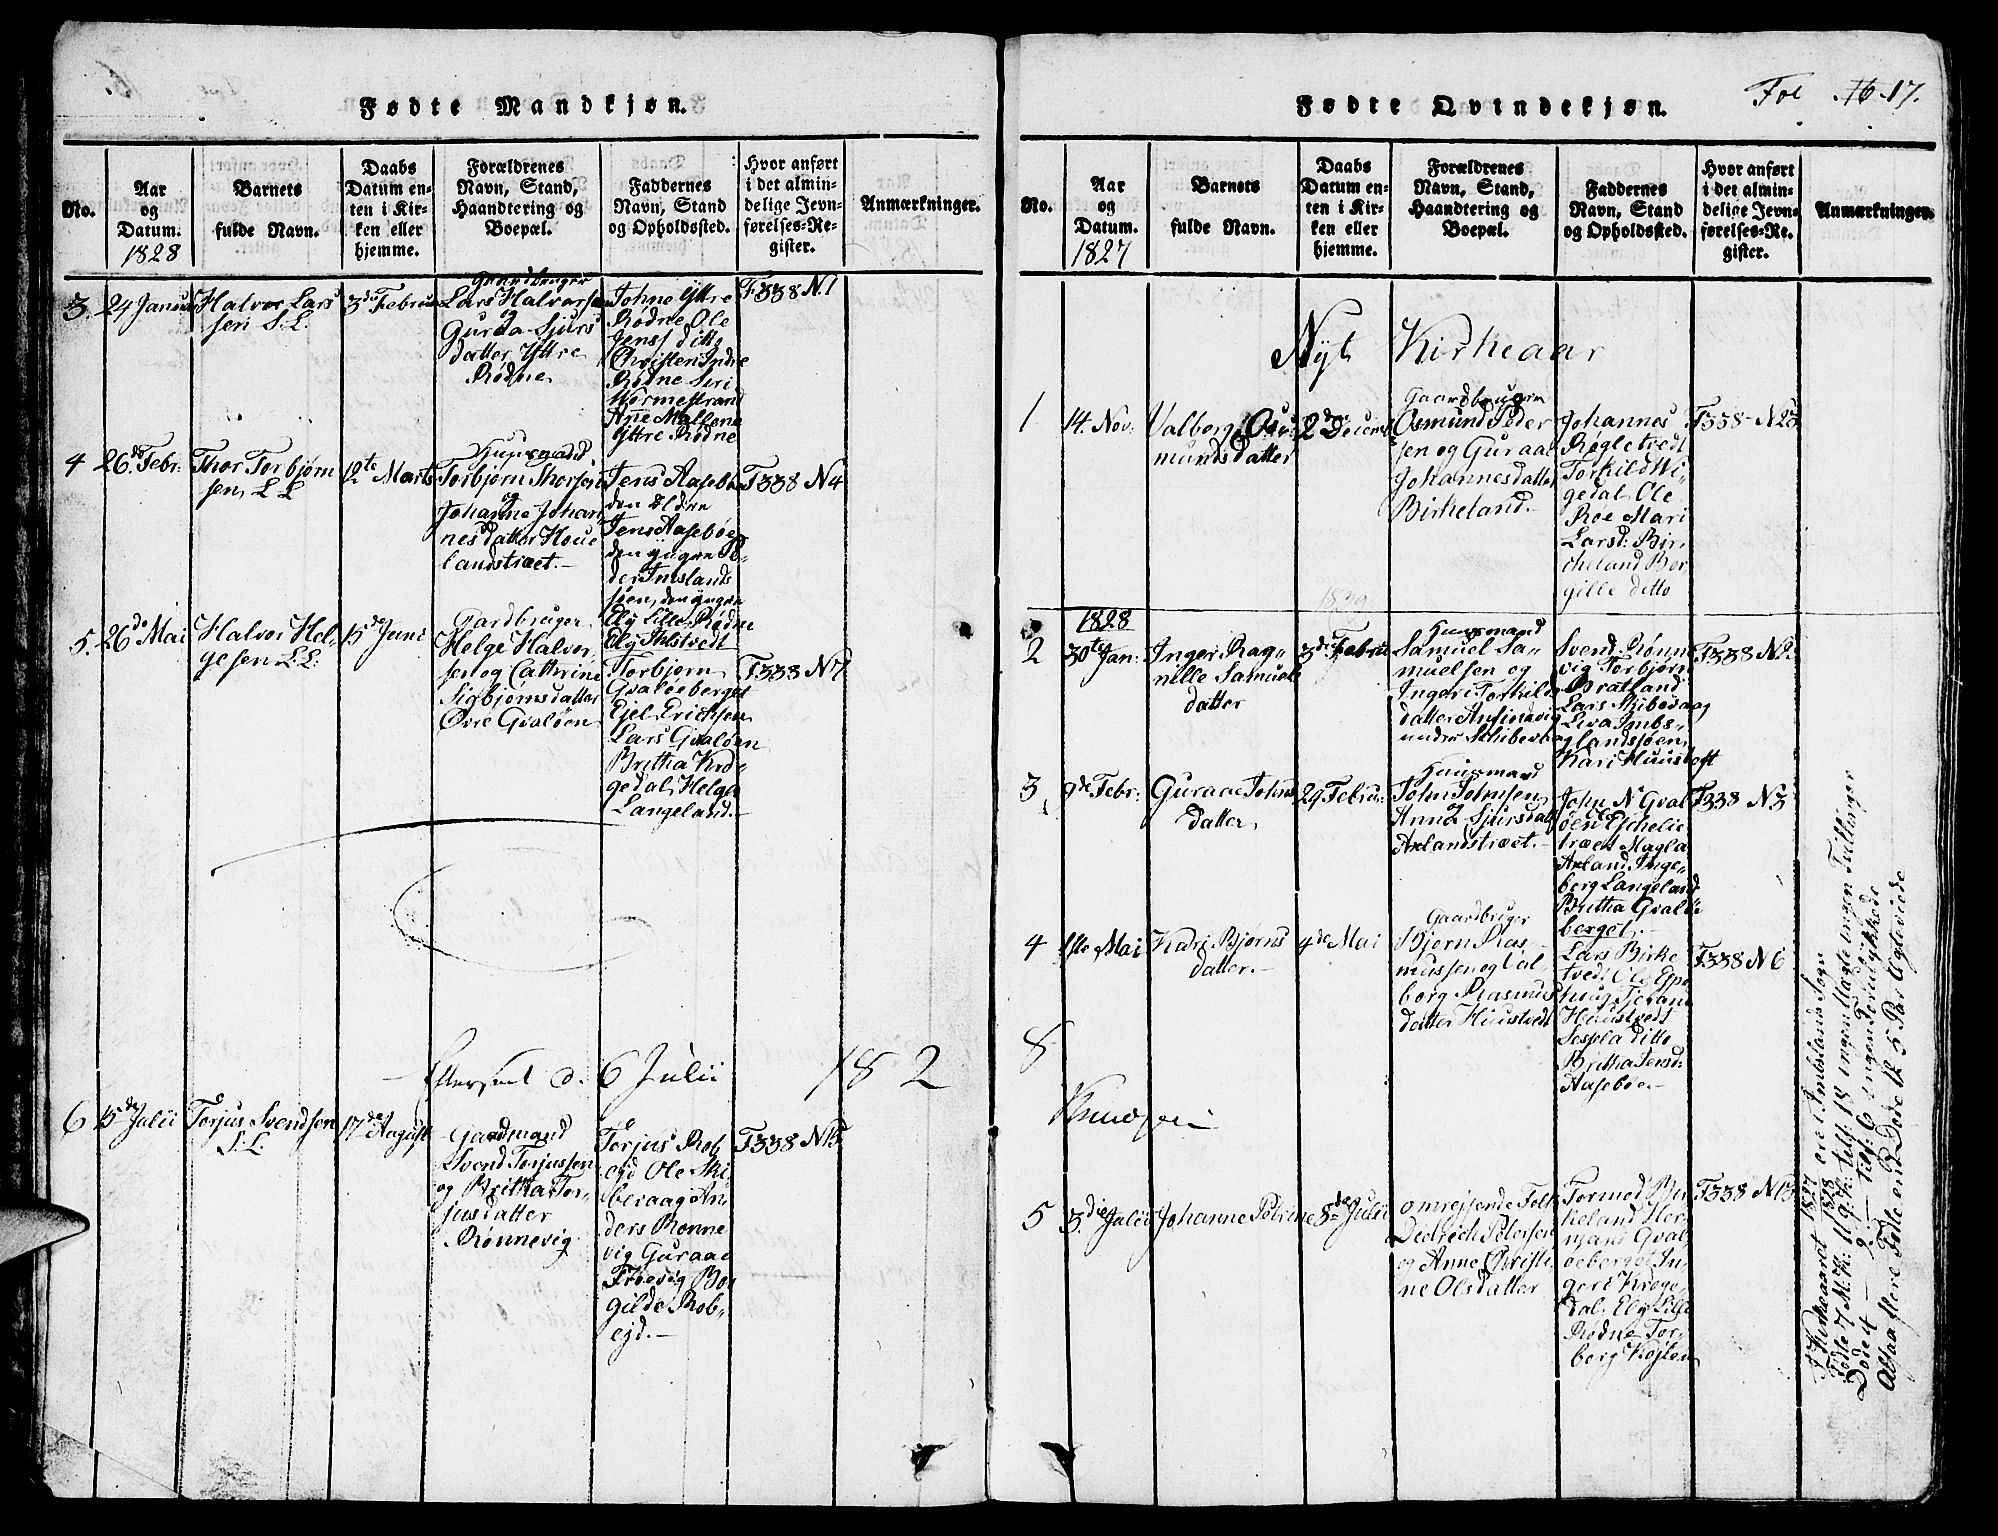 Fødte Mandkjøn.
No.
Aar
og
Datum.
1828
Barnets
fulde Navn.
Daabs
Datum en-
ten i Kir-
ken eller
hjemme.
Forældrenes
Navn, Stand,
Haandtering og
Boepæl.
Faddernes
Navn, Stand
og Opholdssted.
Hvor anført
i det almin-
delige Jevn-
førelses-Re-
gister.
Anmærkninger.
3. 24 Januar
Halvor Lars
sen L. L.
3de Februar
Gaardbruger
Lars Halvorsen
og
Gurda Sjurs
datter Yttre
Rødne
Johne Yttre
Rødne Ole
Jens ditto
Christen Indre
Rødne Siri
Wormestrand
Ane Mallene
Yttre Rødne
F338 N.1
4 26de Febr:
Thor Torbjørn
sen L L
12te Marts
Huusmand
Torbjørn Thorsen
og
Johanne Johan
nesdatter Houe
landstræet.-
Jens Aasebøe
den Eldre
Jens Aasebøe
den yngre Pe-
der Imslands
søen, den yngre
Ely Lille Rødne
Ely Ahltvedt
F338 N4
5. 26de Mai
Halvor Hel-
gesen L.L.
15de Juni
Gardbruger
Helge Halvor
sen og Cathrine
Sigbjørnsdatter
Øvre Gvaløen
Torbjørn
Gvaløeberget
Ejel Ericksen
Lars Gvaløen
Britha Kro-
gedal Helga
Langeland.-
F338 N7
Efterseet d. 6 Julii 182
6 15de Julii
Torjus Svendsen
L.L.
17de August
Gardmand
Svend Torjussen
og Britha Tor-
jusdatter
Rønnevig
Torjus Rob
ejd Ole Ski
bevaag An-
ders Rønne
vig Guraae
Frøevig Bor
gilde Rob-
ejd.-
F338 N15
Fødte Qvindekjøn.
Fol 16.17.
No.
Aar
og
Datum.
1827
Barnets
fulde Navn.
Daabs
Datum en-
ten i Kir-
ken eller
hjemme.
Forældrenes
Navn, Stand,
Haandtering og
Boepæl.
Faddernes
Navn, Stand
og Opholdssted.
Hvor anført
i det almin-
delige Jevn-
førelses-Re-
gister.
Anmærkninger.
Nyt Kirkeaar
1 14. Nov:
Valborg Os-
mundsdatter
2de Decemb
Gaardbruger
Osmund Peder
sen og Guraae
Johannesdatter
Birkeland.-
Johannes
Røgletvedt
Torkild Wi-
gedal Ole
Røe Mari
Larsd: Bir-
cheland Bor
gille ditto
F338 N23
1828
2 30te Jan:
Ingeri Rag-
nille Samuels
datter
3de Februar
Huusmand
Samuel Sa-
muelsen og
Ingeri Torkils
datter
under Schibevog
Svend Rønne
vig Torbjørn
Bratland
Lars Skibevaag
Liva Imbs-
landsjøen
Kari Huustoft
F338 N2
3 9de Febr:
Guraae Johns
datter
29 Februar
Huusmand
John Johnsen
og
Anna Sjursdatt
Axlandstræet.-
John N Gval
øen Ole Eschelie
træet Magla
Axland Inge-
borg Langeland
Britha Gvaløe
berget.-
F338 N3
4 1ste Mai
Kari Bjørns
datter.-
4de Mai
Gaardbruger
Bjørn Ras-
mussen og Val-
borg Rasmus
datter Huustvedt
Lars Birke
tvedt Ole Espe
houg Tjeran
Huustvedt
Sespla ditto
Britha Jensd:
Aasebøe-
F338 N6
8
Knudsen
5 3die Julii
Johanne Petrine
8de Julii
omrejsende Folk
Diedrich Petersen
og Anne Christi
ne Olsdatter
Tormod Bir
keland Her-
mans Gval
øeberget In-
geri Kroge-
dal Ely Lille
Rødne Tor-
berg Køjlen
F338 N13
I Kirkeaaret 1827/1828 ere i Imbslands Sogn
Fødte 7 M.K: 11 Q.K: tils: 18 ingen Uægte ingen Tvillinger
Døde 4 - 2 - tils: 6 ingen Forulykkede
Altsaa flere Fødte end Døde 12 5 Par Ægteviede